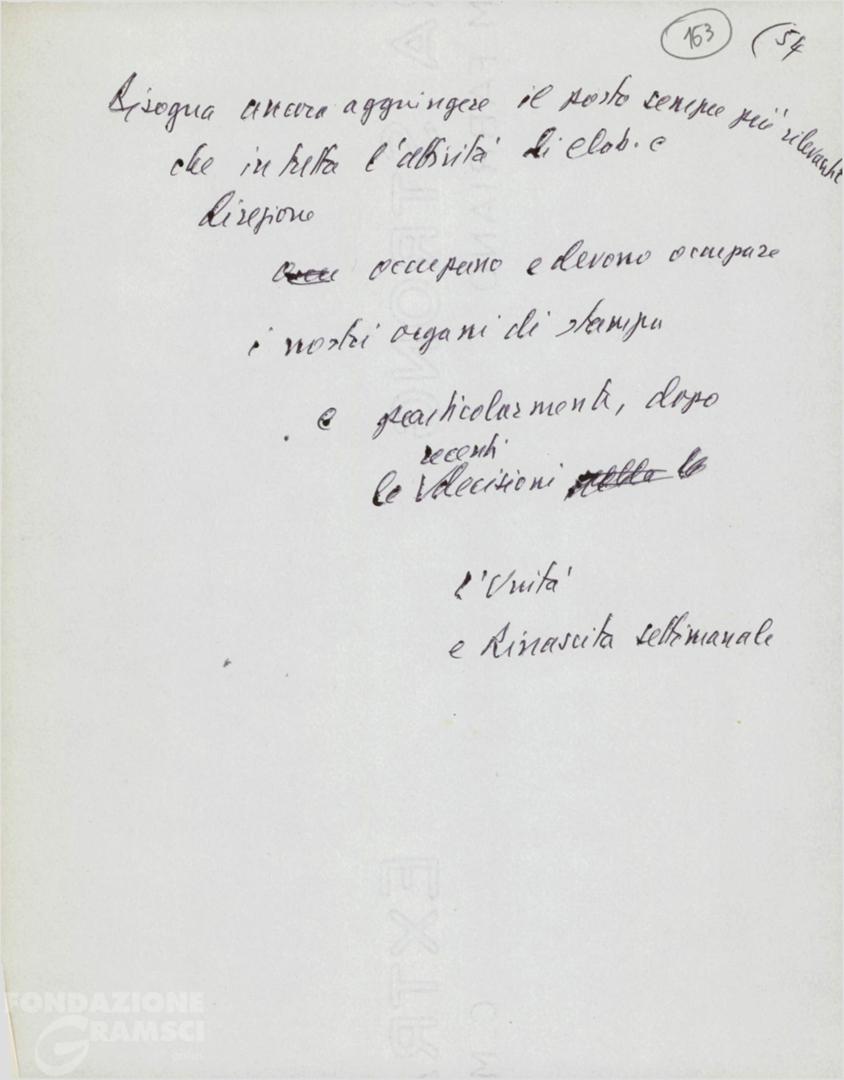 163 (54
Bisogna ancora aggiungere il posto sempre più rilevante
che in tutta l'attività di elab. e
direzione
occupano e devono occupare
i nostri organi di stampa
e particolarmente, dopo
recenti
le decisioni nella le
l'Unità
e Rinascita settimanale
EXTR
FONDAZIONE
GRAMSCI